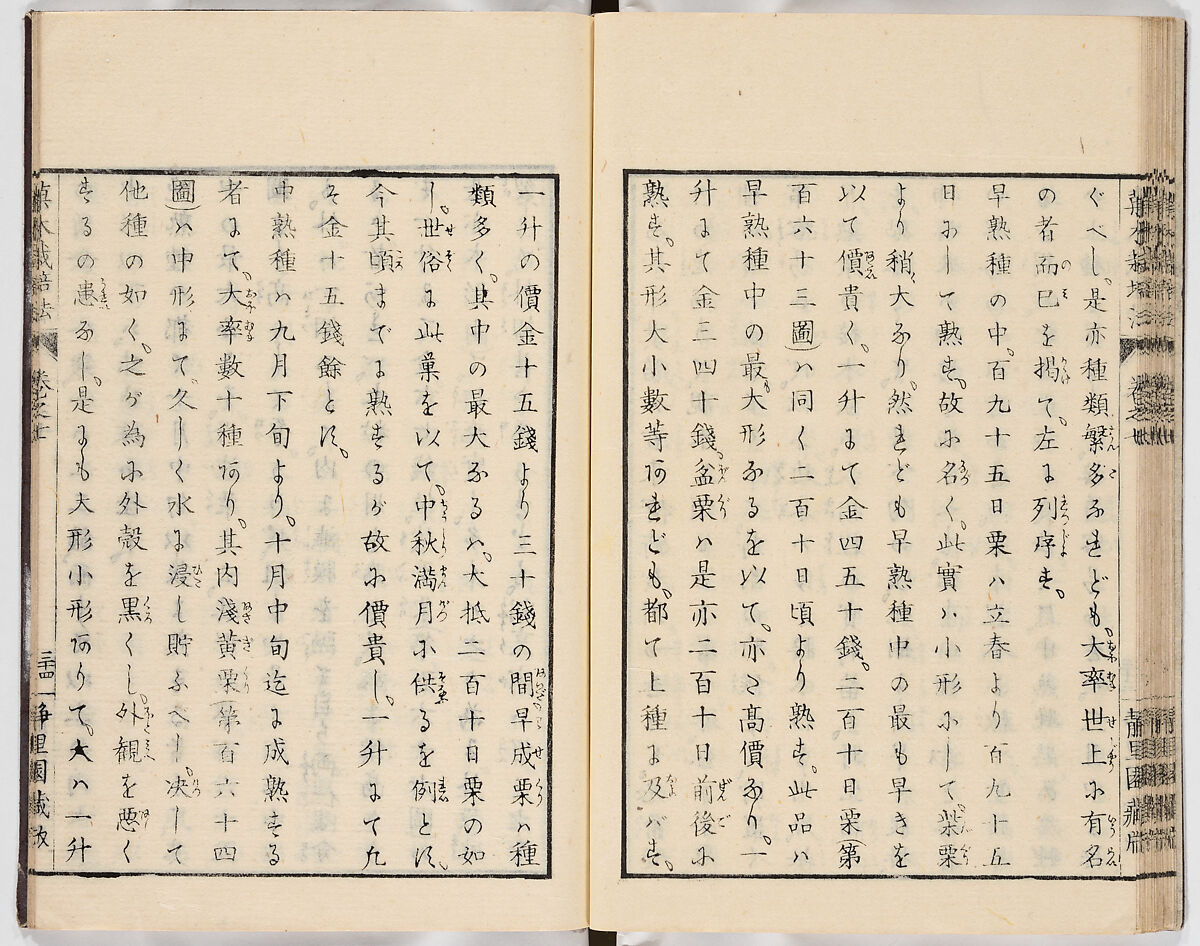 ぐべし、是亦種類繁多なれども、大率世上に有名
の者而已を揭て、左に列序す、
早熟種の中、百九十五日栗ハ立春より百九十五
日にして熟す、故に名く、此實ハ小形にして、柴栗
より稍大なり、然れども早熟種中の最も早きを
以て價貴く、一升にて金四五十錢、二百十日栗(第
百六十三圖)ハ同く二百十日頃より熟す、此品ハ
早熟種中の最大形なるを以て、亦々高價なり、一
升にて金三四十錢、盆栗ハ是亦二百十日前後に
熟す、其形大小數等アれども、都て上種に及バず、
一升の價金十五錢より三十錢の間、早成栗ハ種
類多く、其中の最大なるハ、大抵二百十日栗の如
し、世俗に此菓を以て、中秋滿月に供るを例とす、
今其頃までに熟するが故に價貴し、一升にて九
そ金十五錢餘とす、
中熟種ハ九月下旬より、十月中旬迄に成熟する
者にて、大率數十種アり、其内淺黄栗(第百六十四
圖)ハ中形にて、久しく水に浸し貯ふべし、决して
他種の如く、之が為に外殼を黒くし、外観を悪く
するの患なし、是にも大形小形アりて、大ハ一升
菓木栽培法 卷之七 三十四 静里園藏版